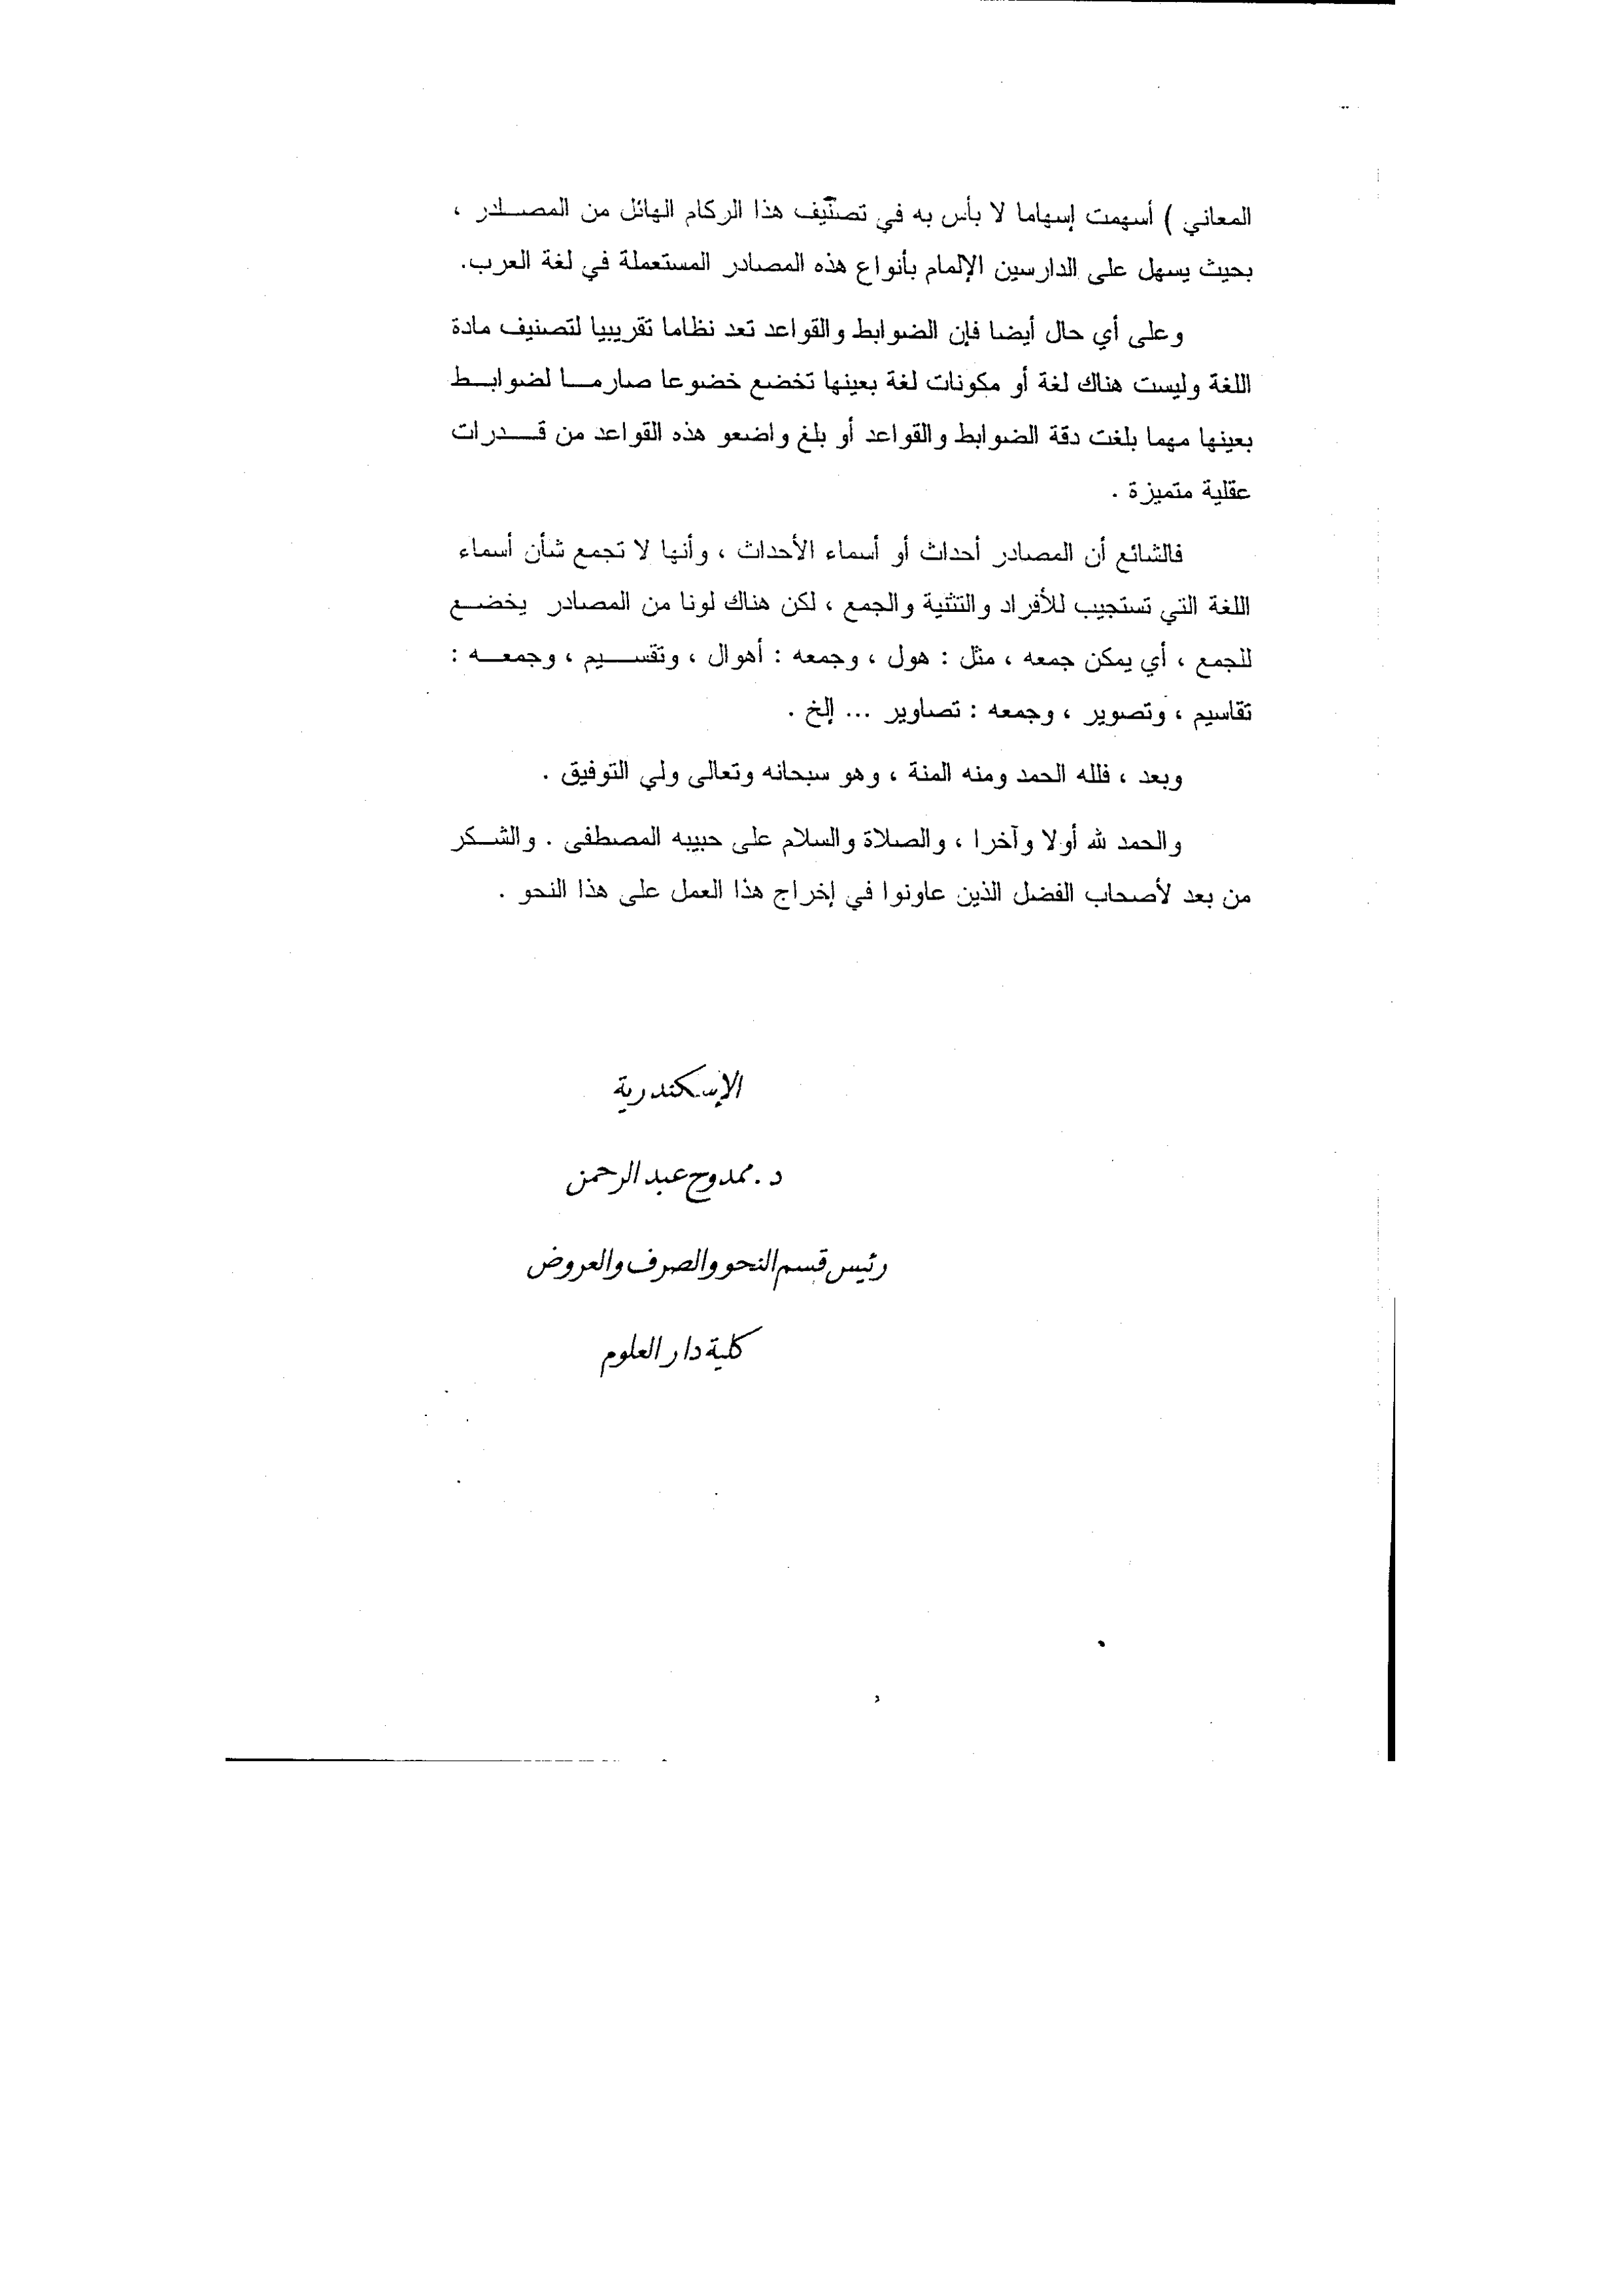 المعاني ) أسهمت إسهاما لا بأس به في تصنيف هذا الركام الهائل من المصادر ،
بحيث يسهل على الدارسين الإلمام بأنواع هذه المصادر المستعملة في لغة العرب.
وعلى أي حال أيضا فإن الضوابط والقواعد تعد نظاما تقريبيا لتصنيف مادة
اللغة وليست هناك لغة أو مكونات لغة بعينها تخضع خضوعا صارما لضوابط
بعينها مهما بلغت دقة الضوابط والقواعد أو بلغ واضعو هذه القواعد من قدرات
عقلية متميزة .
فالشائع أن المصادر أحداث أو أسماء الأحداث ، وأنها لا تجمع شأن أسماء
اللغة التي تستجيب للأفراد والتثنية والجمع ، لكن هناك لونا من المصادر يخضع
للجمع ، أي يمكن جمعه ، مثل : هول ، وجمعه : أهوال ، وتقسيم ، وجمعه :
تقاسيم ، وتصوير ، وجمعه : تصاوير ... إلخ .
وبعد ، فلله الحمد ومنه المنة ، وهو سبحانه وتعالى ولي التوفيق .
والحمد لله أولا وآخرا ، والصلاة والسلام على حبيبه المصطفى . والشكر
من بعد لأصحاب الفضل الذين عاونوا في إخراج هذا العمل على هذا النحو .
الإسكندرية
د . ممدوح عبد الرحمن
رئيس قسم النحو والصرف والعروض
كلية دار العلوم
د